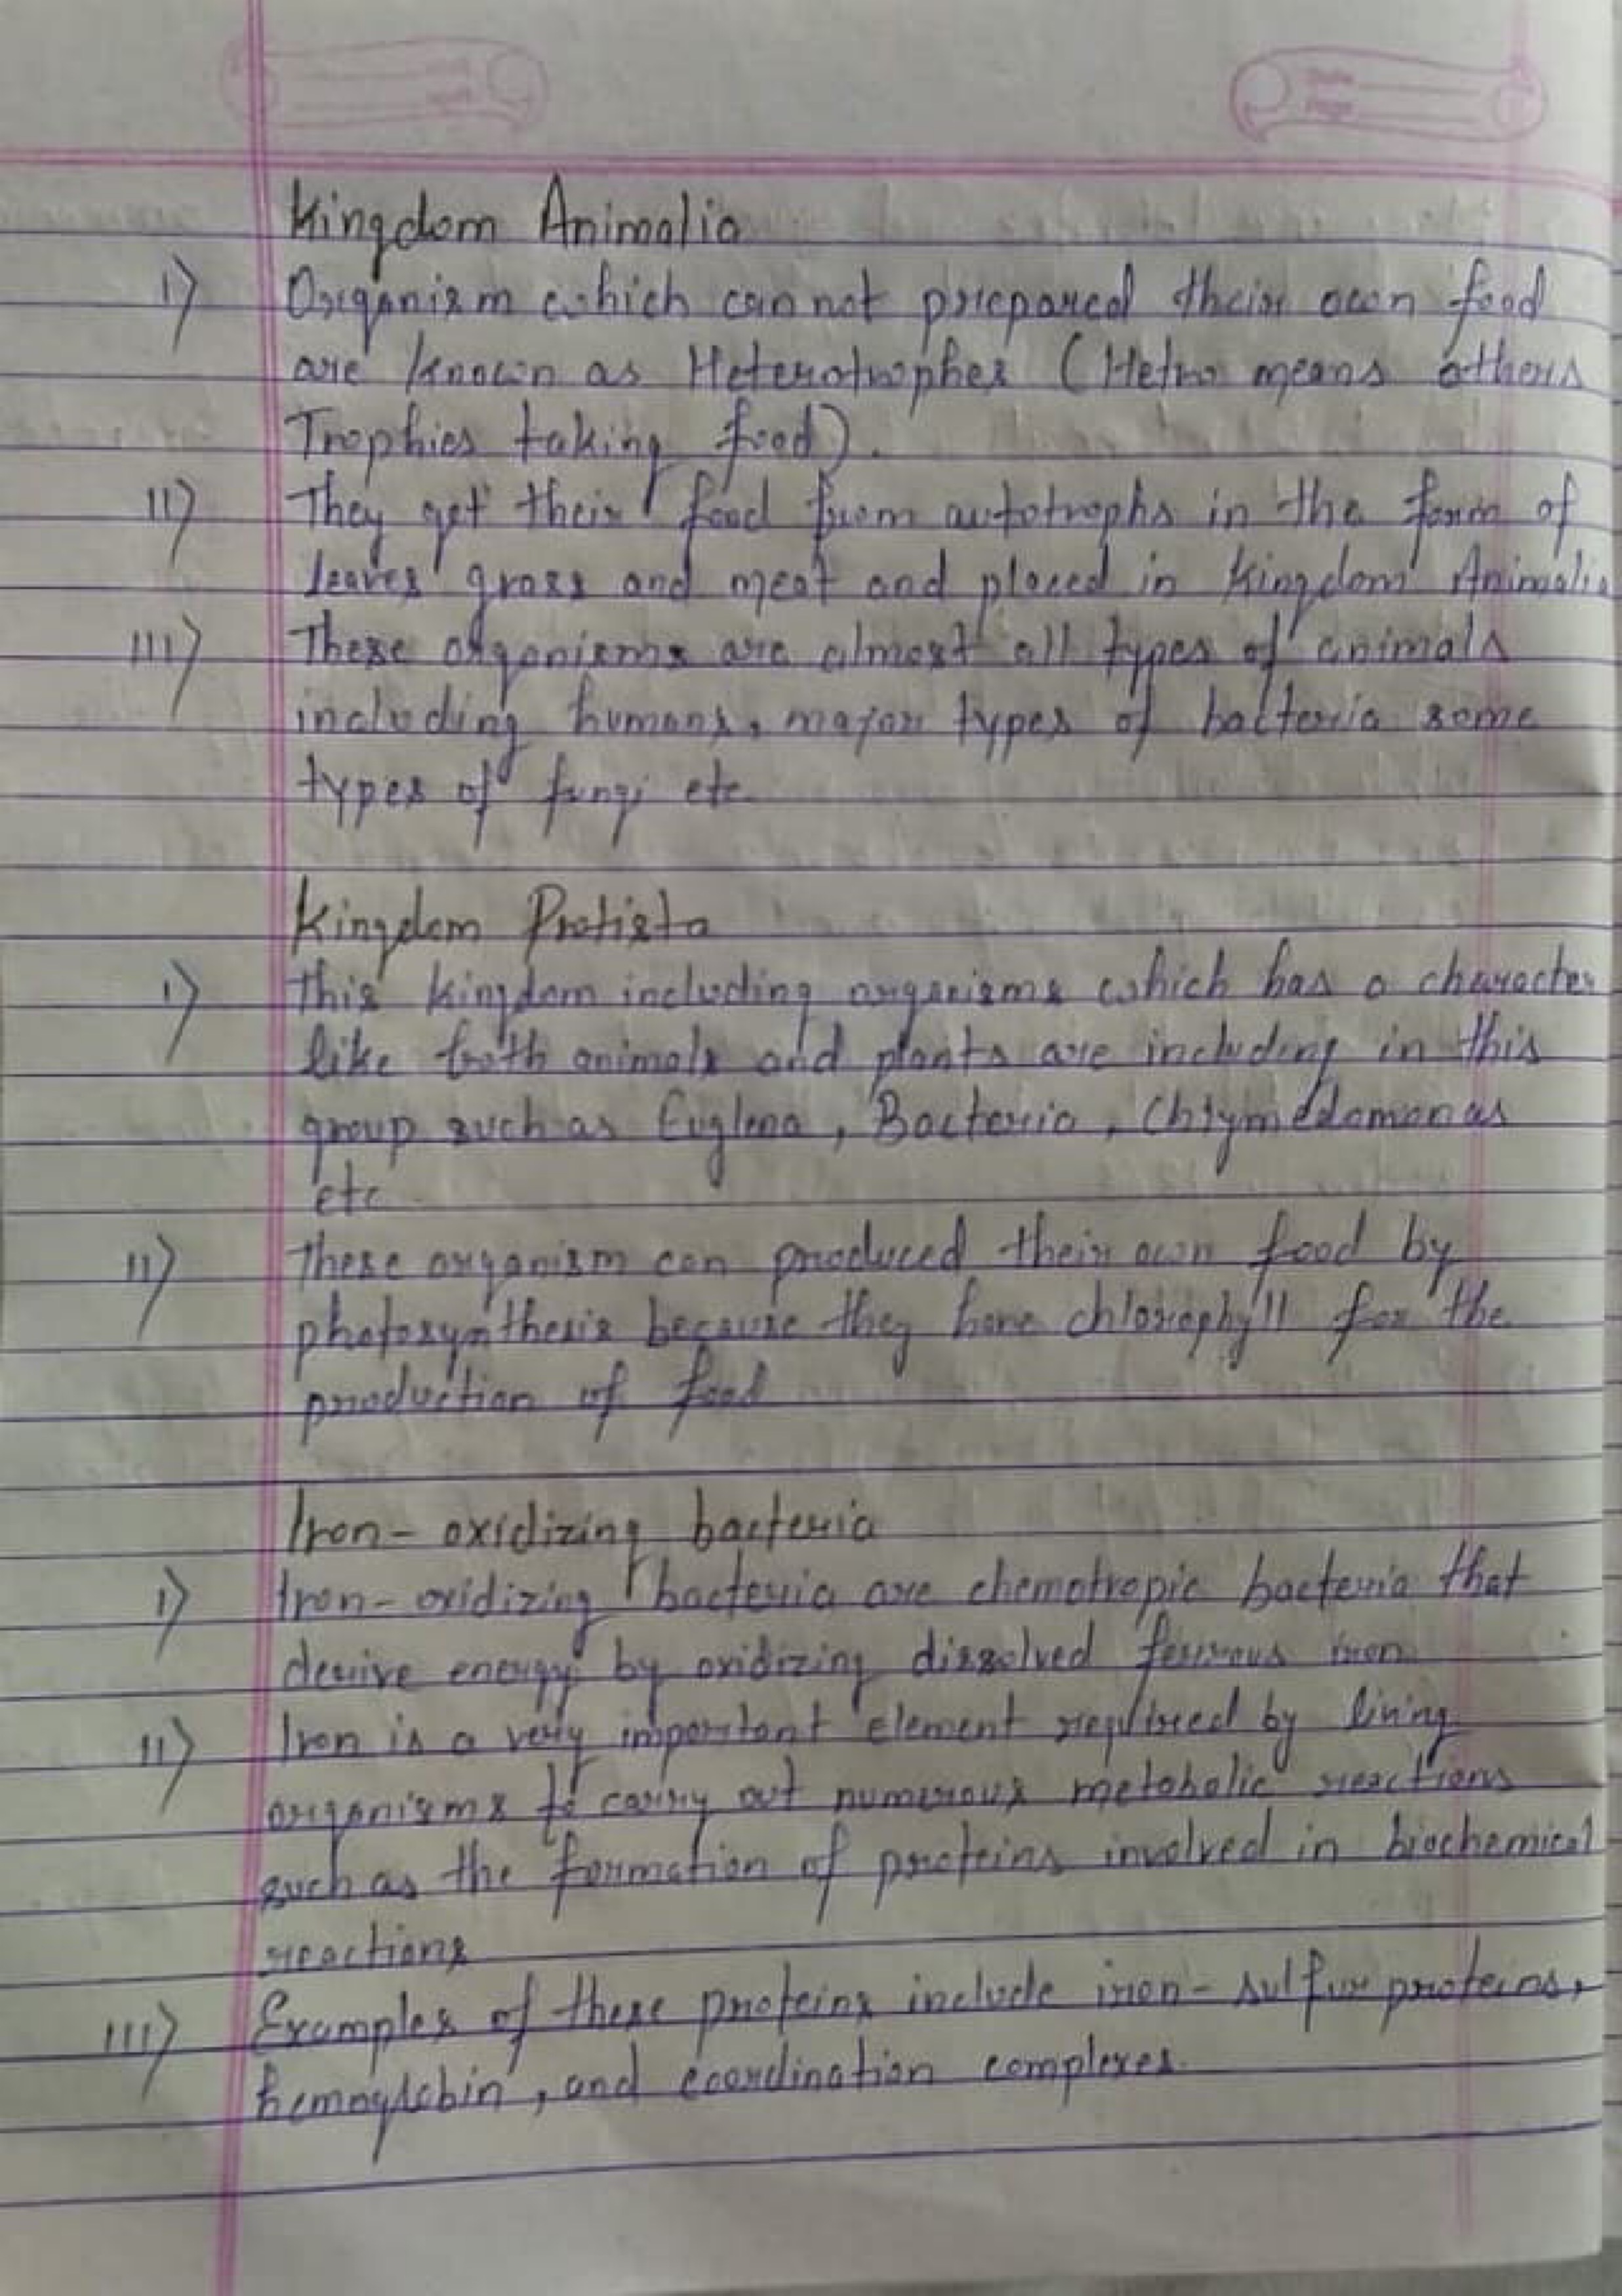 Date
Page
Kingdom Animalia
I) Organism which can not prepared their own food
are known as Heterotrophes (Hetro means others
Trophies taking food).
II) They get their food from autotrophs in the form of
leaves grass and meat and placed in Kingdom Animalia
III) These organisms are almost all types of animals
including humans, major types of bacteria some
types of fungi etc.
Kingdom Protista
I) This kingdom including organisms which has a character
like both animals and plants are including in this
group such as Euglena, Bacteria,
etc
II) These organism can produced their own food by
photosynthesis because they have chlorophyll for the
production of food
Iron-oxidizing bacteria
I) Iron-oxidizing bacteria are chemotropic bacteria that
derive energy by oxidizing dissolved ferrous iron.
II) Iron is a very important element required by living
organisms to carry out numerous metabolic reactions
such as the formation of proteins involved in biochemical
reactions
III) Examples of these proteins include iron-sulfur proteins,
hemoglobin, and coordination complexes.